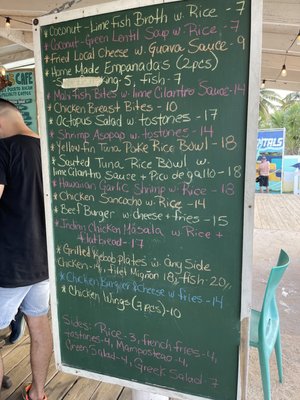 * Coconut-Lime Fish Broth w Rice - 7
* Coconut-Green Lentil Soup w. Rice - 7
* Fried Local Cheese w Guava Sauce - 9
* Home Made Empanadas (2pcs)
5, fish - 7
* Mahi Fish Bites w lime Cilantro Sauce - 14
* Chicken Breast Bites - 10
* Octopus Salad w tostones - 17
* Shrimp Asopao w tostones - 14
* Yellow-fin Tuna Poke Rice Bowl - 18
* Sauted Tuna Rice Bowl w.
lime Cilantro Sauce + Pico de gallo - 18
* Hawaiian Garlic Shrimp w. Rice - 18
* Chicken Sancocho w Rice - 14
* Beef Burger w cheese + fries - 15
* Indian Chicken Masala w Rice +
flatbread - 17
* Grilled Kebob plates w any Side
Chicken - 14, filet Mignon 18, fish - 20
* Chicken Burger & cheese w fries - 14
* Chicken Wings (7pcs) - 10
Sides: Rice - 3, french fries - 4,
tostones - 4, Mamposteao - 4,
Green Salad - 4, Greek Salad - 7
CAFE